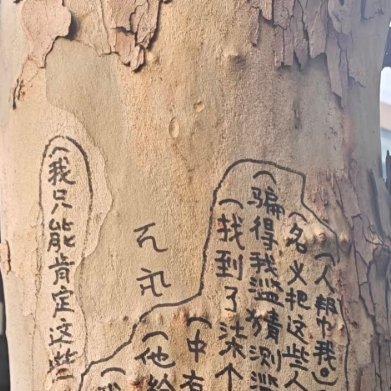 (人帮我。
(名义把这些
(骗得我滥猜测
(找到了柒个
(中有
(他给
(我只能肯定这些